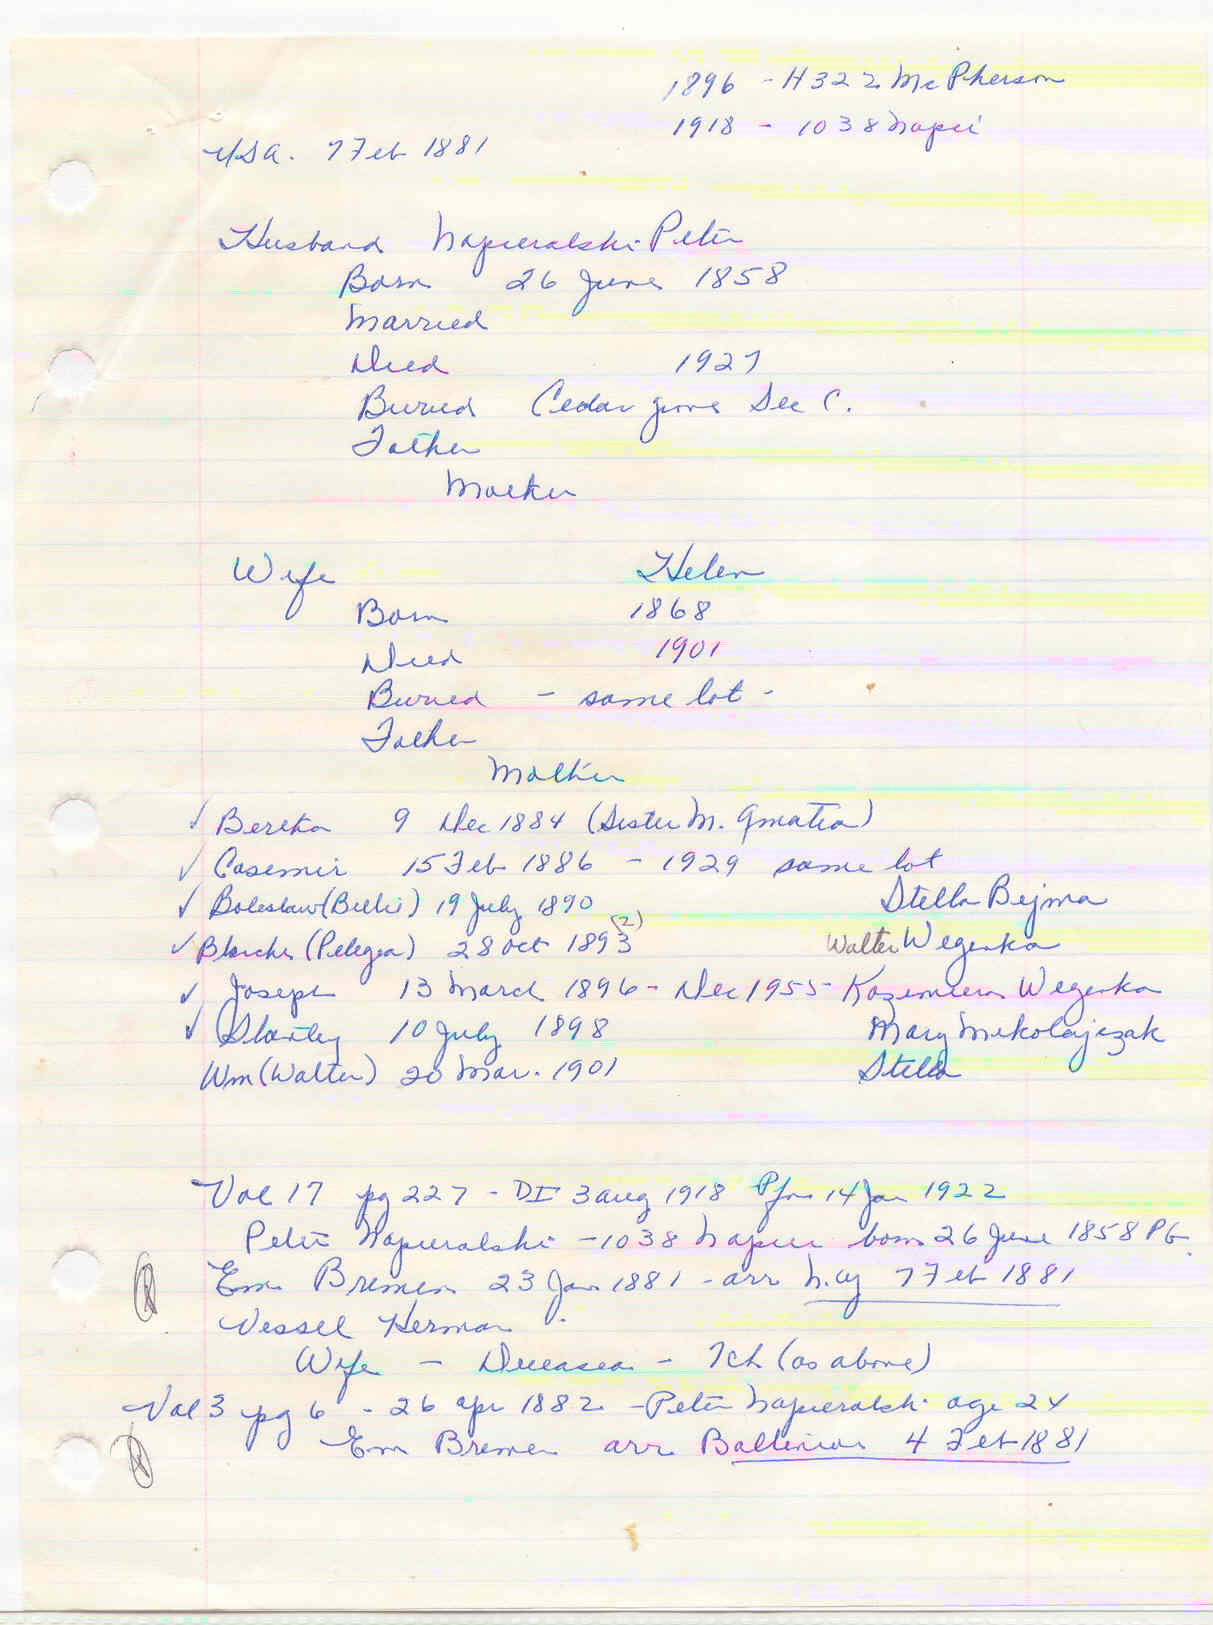 1896 - H 322 McPherson
1918 - 1038 Napier
USA. 7 Feb 1881
Husband Napieralski Peter
Born 26 June 1858
Married
Died 1927
Buried Cedar grove Sec C.
Father
Mother
Wife Helen
Born 1868
Died 1901
Buried - same lot -
Father
Mother
✓ Bertha 9 Dec 1884 (Sister M. Ignatia)
✓ Casemir 15 Feb 1886 - 1929 same lot
✓ Boleslaw (Billie) 19 July 1890 Stella Bejma
✓ Blanche (Pelegea) 28 Oct 1893 (2) Walter Wegenka
✓ Joseph 13 March 1896 - Dec 1955 - Kazimiera Wegenka
✓ Stanley 10 July 1898 Mary Mikolajczak
Wm (Walter) 20 Mar. 1901 Stella
Vol 17 pg 227 - DI 3 aug 1918 14 Jan 1922
Peter Napieralski - 1038 Napier born 26 June 1858 PG
Em Bremen 23 Jan 1881 - arr N.Y 7 Feb 1881
Vessel Herman
Wife - Deceased - 7 ch (as above)
Vol 3 pg 6 - 26 apr 1882 - Peter Napieralski age 24
Em Bremen arr Baltimore 4 Feb 1881